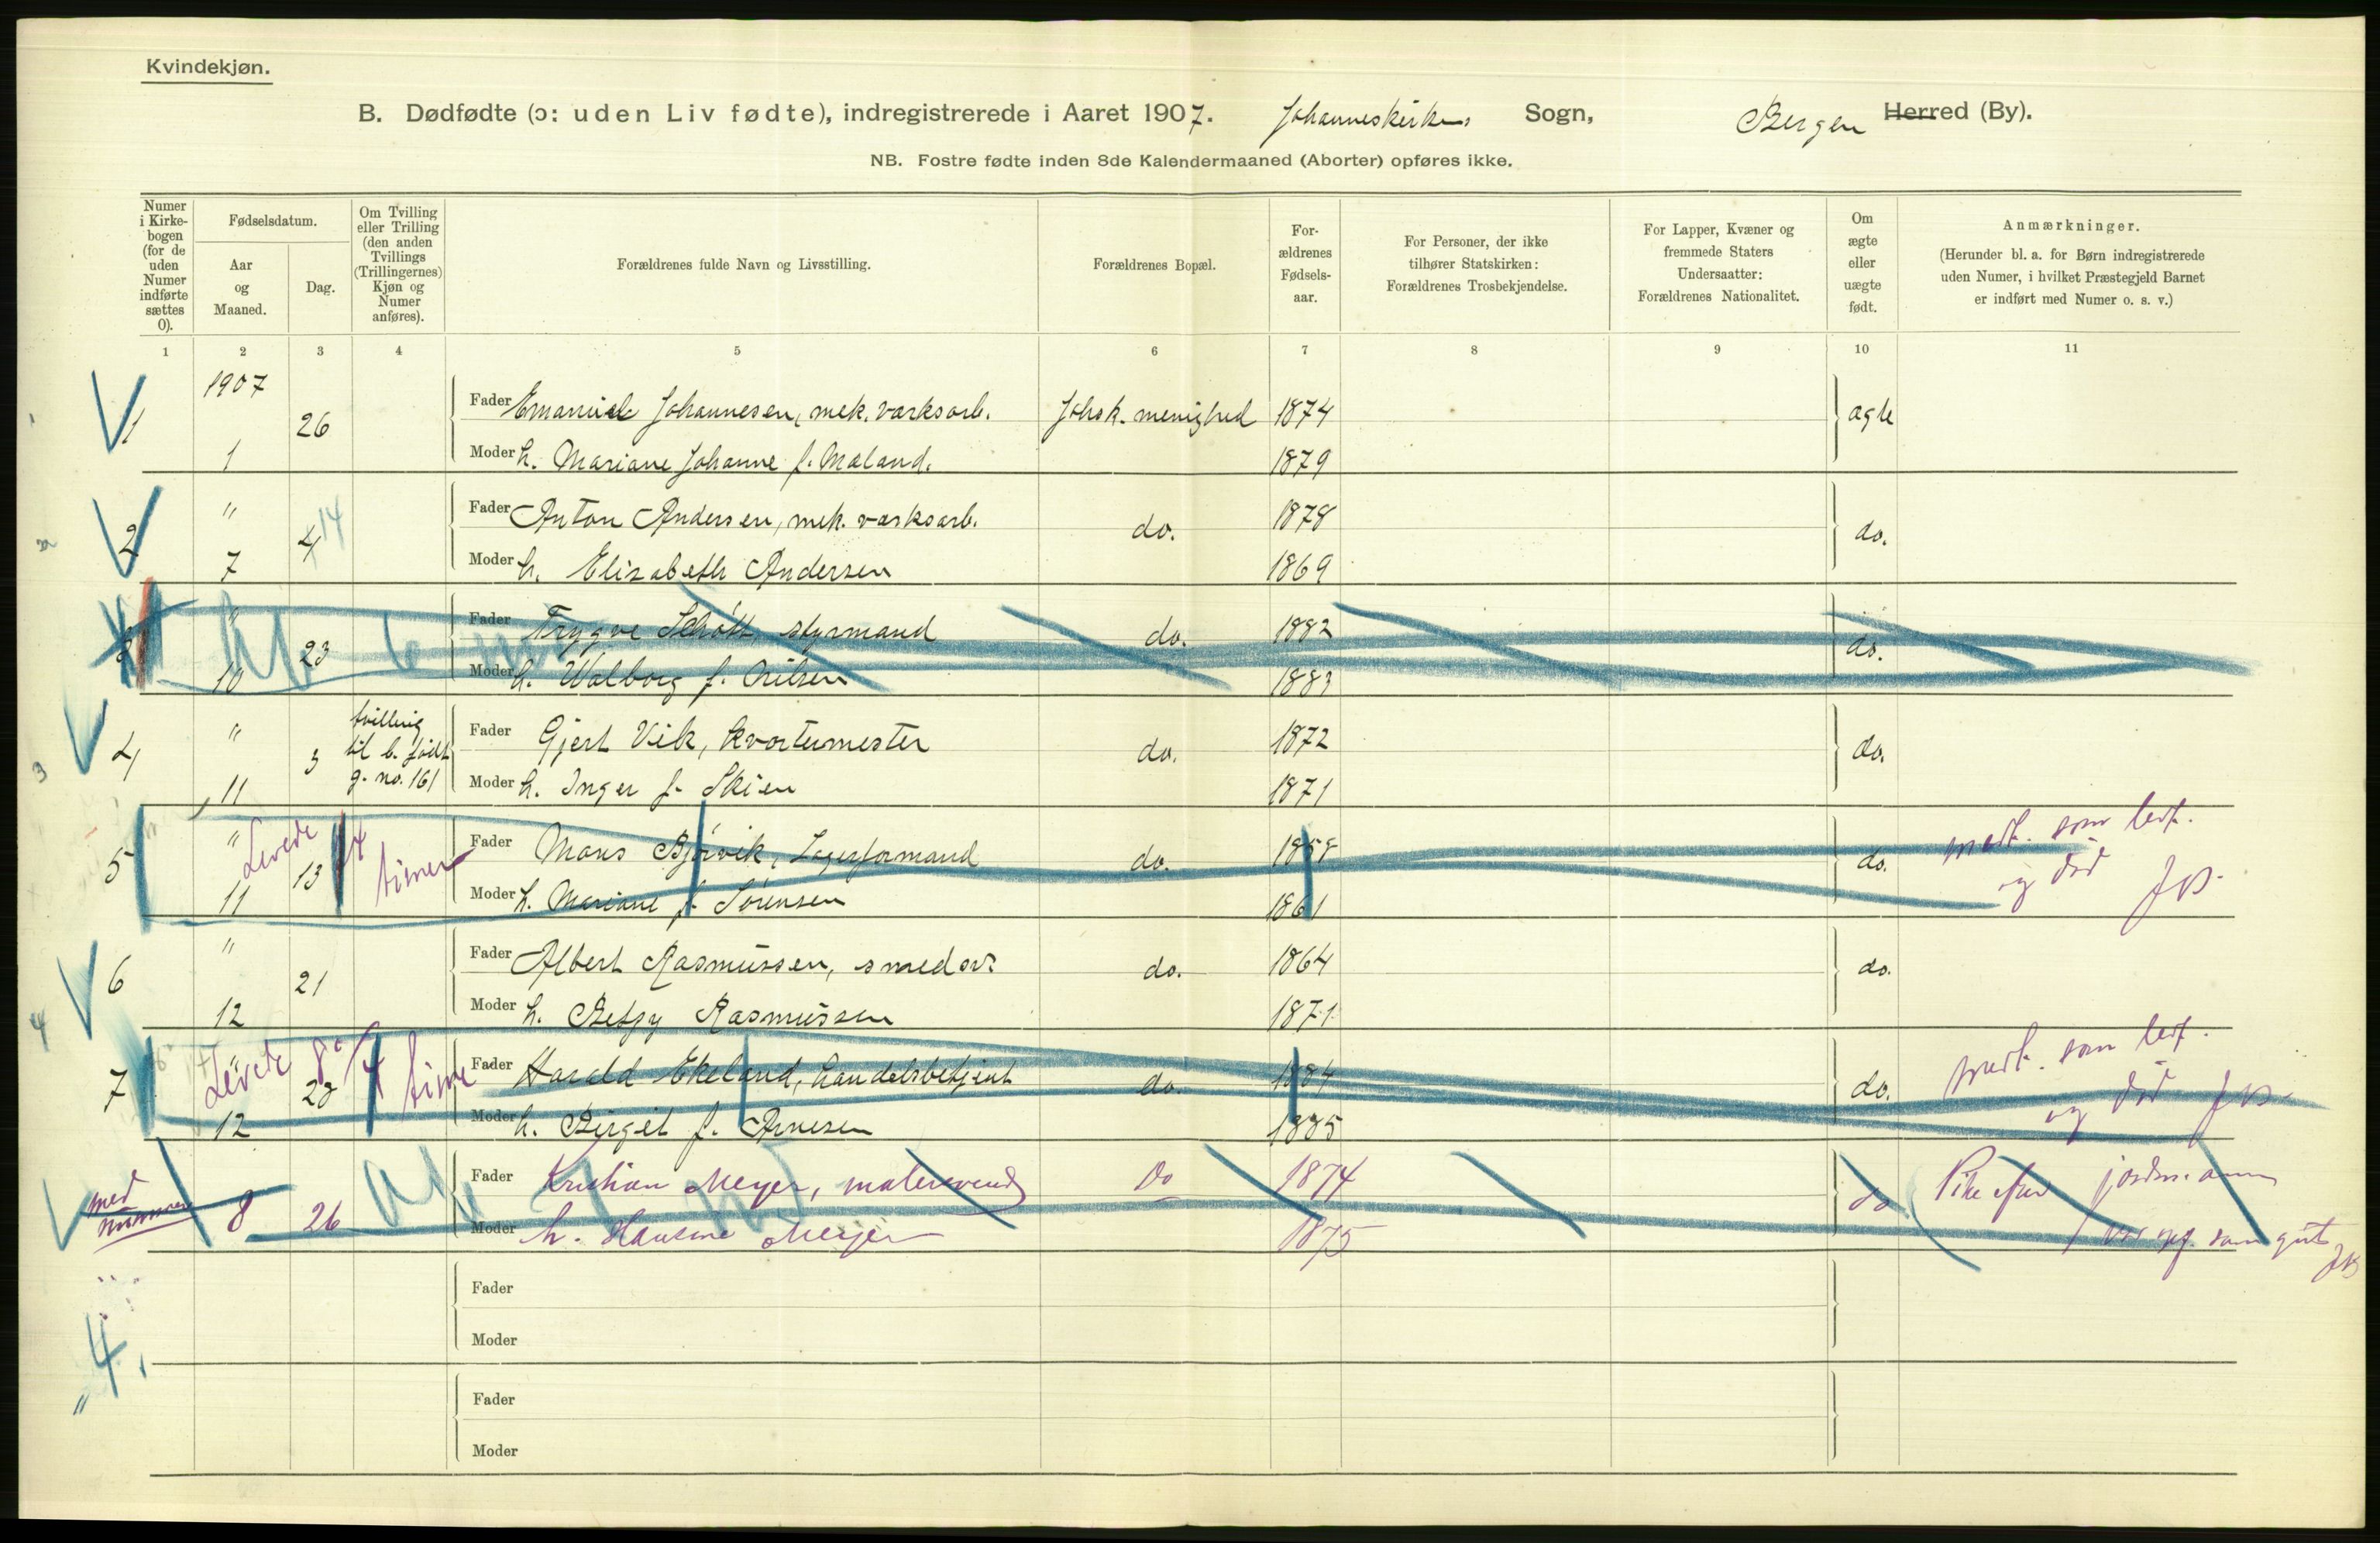 Kvindekjøn.
B. Dødfødte (ɔ: uden Liv fødte), indregistrerede i Aaret 1907. Johanneskirkens Sogn, Bergen Herred (By).
NB. Fostre fødte inden 8de Kalendermaaned (Aborter) opføres ikke.
Numer i Kirkebogen (for de uden Numer indførte sættes 0).
Fødselsdatum.
Aar og Maaned.
Dag.
Om Tvilling eller Trilling (den anden Tvillings (Trillingernes) Kjøn og Numer anføres).
Forældrenes fulde Navn og Livsstilling.
Forældrenes Bopæl.
Forældrenes Fødselsaar.
For Personer, der ikke tilhører Statskirken: Forældrenes Trosbekjendelse.
For Lapper, Kvæner og fremmede Staters Undersaatter: Forældrenes Nationalitet.
Om ægte eller uægte født.
Anmærkninger.
(Herunder bl. a. for Børn indregistrerede uden Numer, i hvilket Præstegjeld Barnet er indført med Numer o. s. v.)
1 2 3 4 5 6 7 8 9 10 11
1907
1 26 Fader Emanuel Johannesen, mek. værksarb. Johsk. menighed 1874 ægte
1 Moder h. Mariane Johanne f. Mæland. 1879
2 " 4 14 Fader Anton Andersen, mek. værksarb. do. 1878 do.
7 Moder h. Elisabeth Andersen 1869
3 " 23 Fader Trygve Schøtt, styrmand do. 1882 do.
10 Moder h. Walborg f. Nilsen 1883
4 " 3 tvilling til b. født g. no. 161 Fader Gjert Vik, kvartermester do. 1872 do.
11 Moder h. Inger f. Skien 1871
5 " 13 Levede 4 timer Fader Mons Bjørvik, Lagerformand do. 1858 do. medt. som levf. og død JB.
11 Moder h. Mariane f. Sørensen 1861
6 " 21 Fader Albert Rasmussen, smedsv. do. 1864 do.
12 Moder h. Betsy Rasmussen 1871
7 " 28 Levede time Fader Harald Ekeland, handelsbetjent do. 1884 do. medt. som levf. og død JB.
12 Moder h. Birgit f. Arnesen 1885
med nummer 8 26 Fader Kristian Meyer, malersvend Do 1874 do
Moder h. Hansine Meyer 1875 som gut JB
Fader
Moder
4.
Fader
Moder